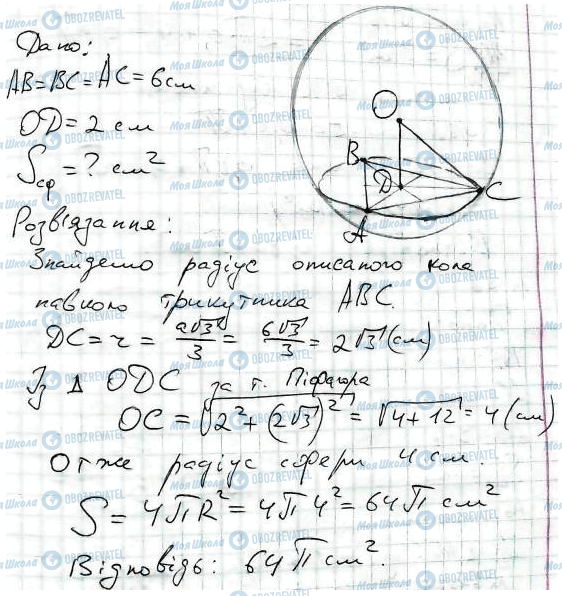 Дано:
AB=BC=AC=6см
OD=2 см
Sсф=? см²
O
B
D
C
A
Розв'язання:
Знайдемо радіус описаного кола
навколо трикутника ABC.
DC = r = a√3/3 = 6√3/3 = 2√3 (см)
Із Δ ODC за т. Піфагора
OC = √(2² + (2√3)²) = √(4+12) = 4 (см)
Отже радіус сфери 4 см.
S = 4πR² = 4π4² = 64π см²
Відповідь: 64π см².
Моя Школа OBOZREVATEL